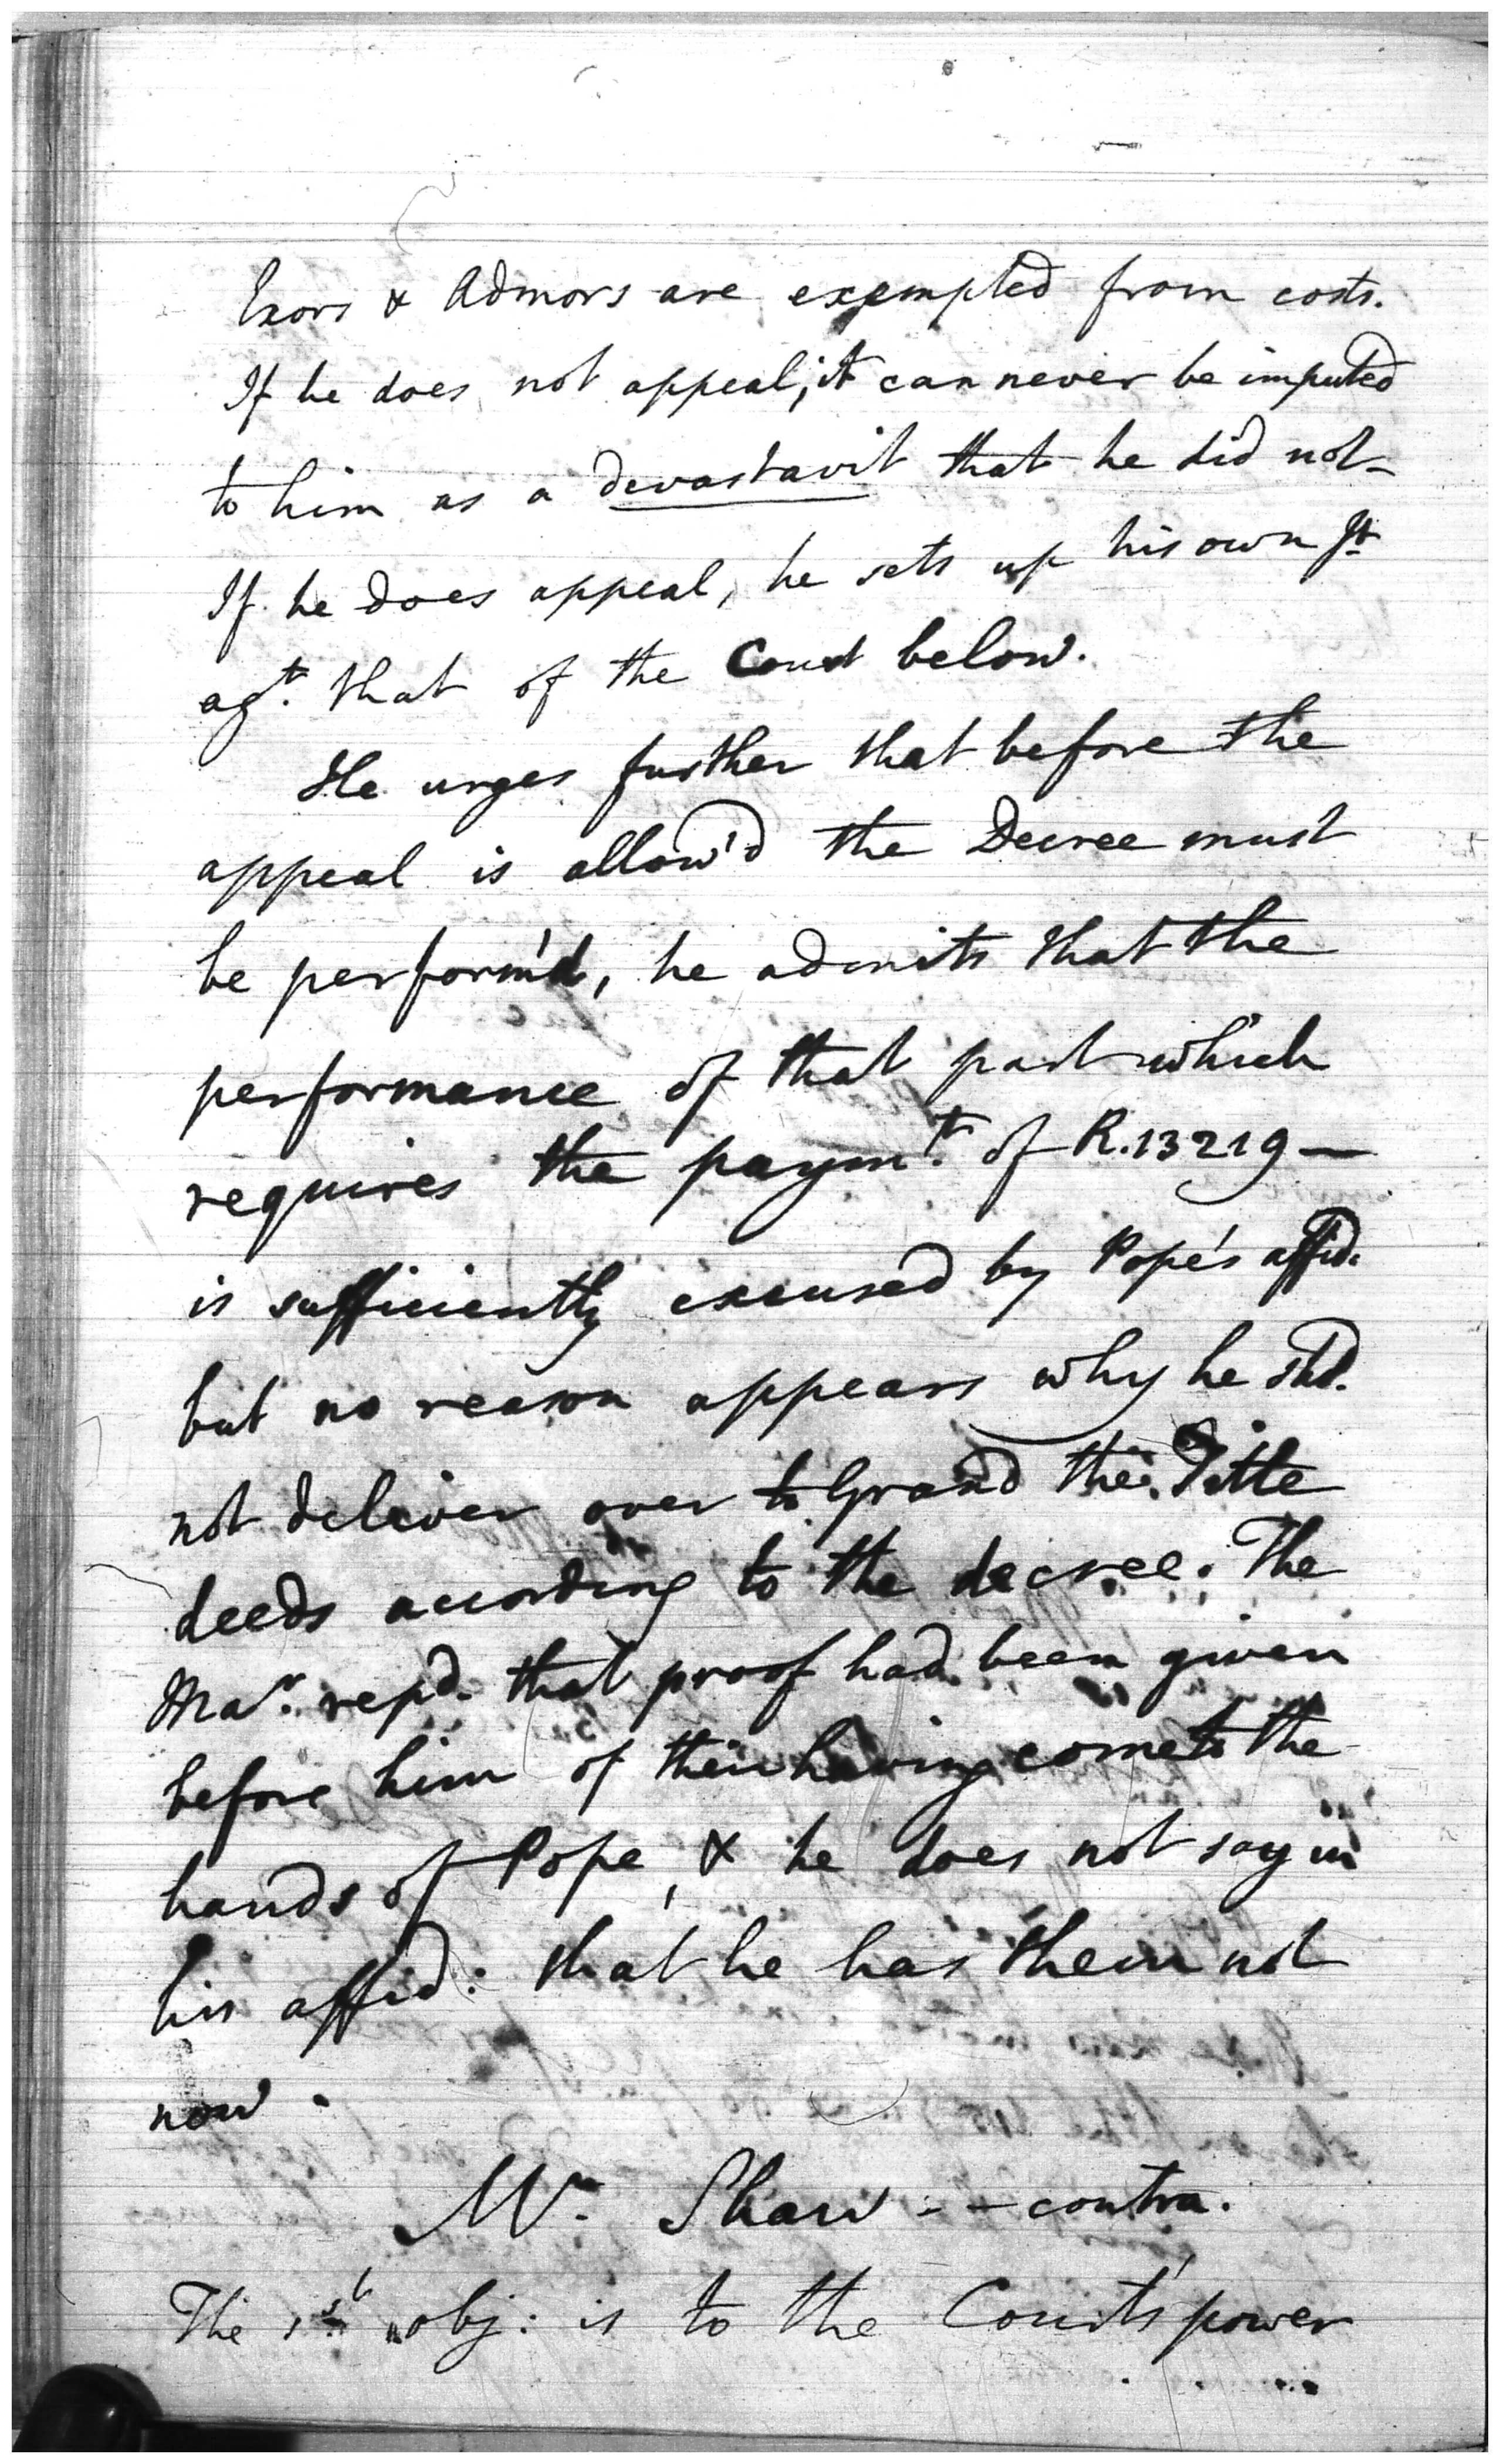 Exors & Admors are exempted from costs.
If he does not appeal, it can never be imputed
to him as a devastavit that he did not -
If he does appeal, he sets up his own Jt.
agt. that of the Court below.
He urges further that before the
appeal is allow'd the Decree must
be perform'd, he admits that the
performance of that part which
requires the paymt. of R. 13219 —
is sufficiently excused by Pope's affid.
but no reason appears why he shd.
not deliver over to Grand the Title
deeds according to the decree. The
Mar. repd. that proof had been given
before him of their having come to the
hands of Pope, & he does not say in
his affid: that he has them not
now.
Mr. Shaw - - contra.
The 1st. obj: is to the Court's power